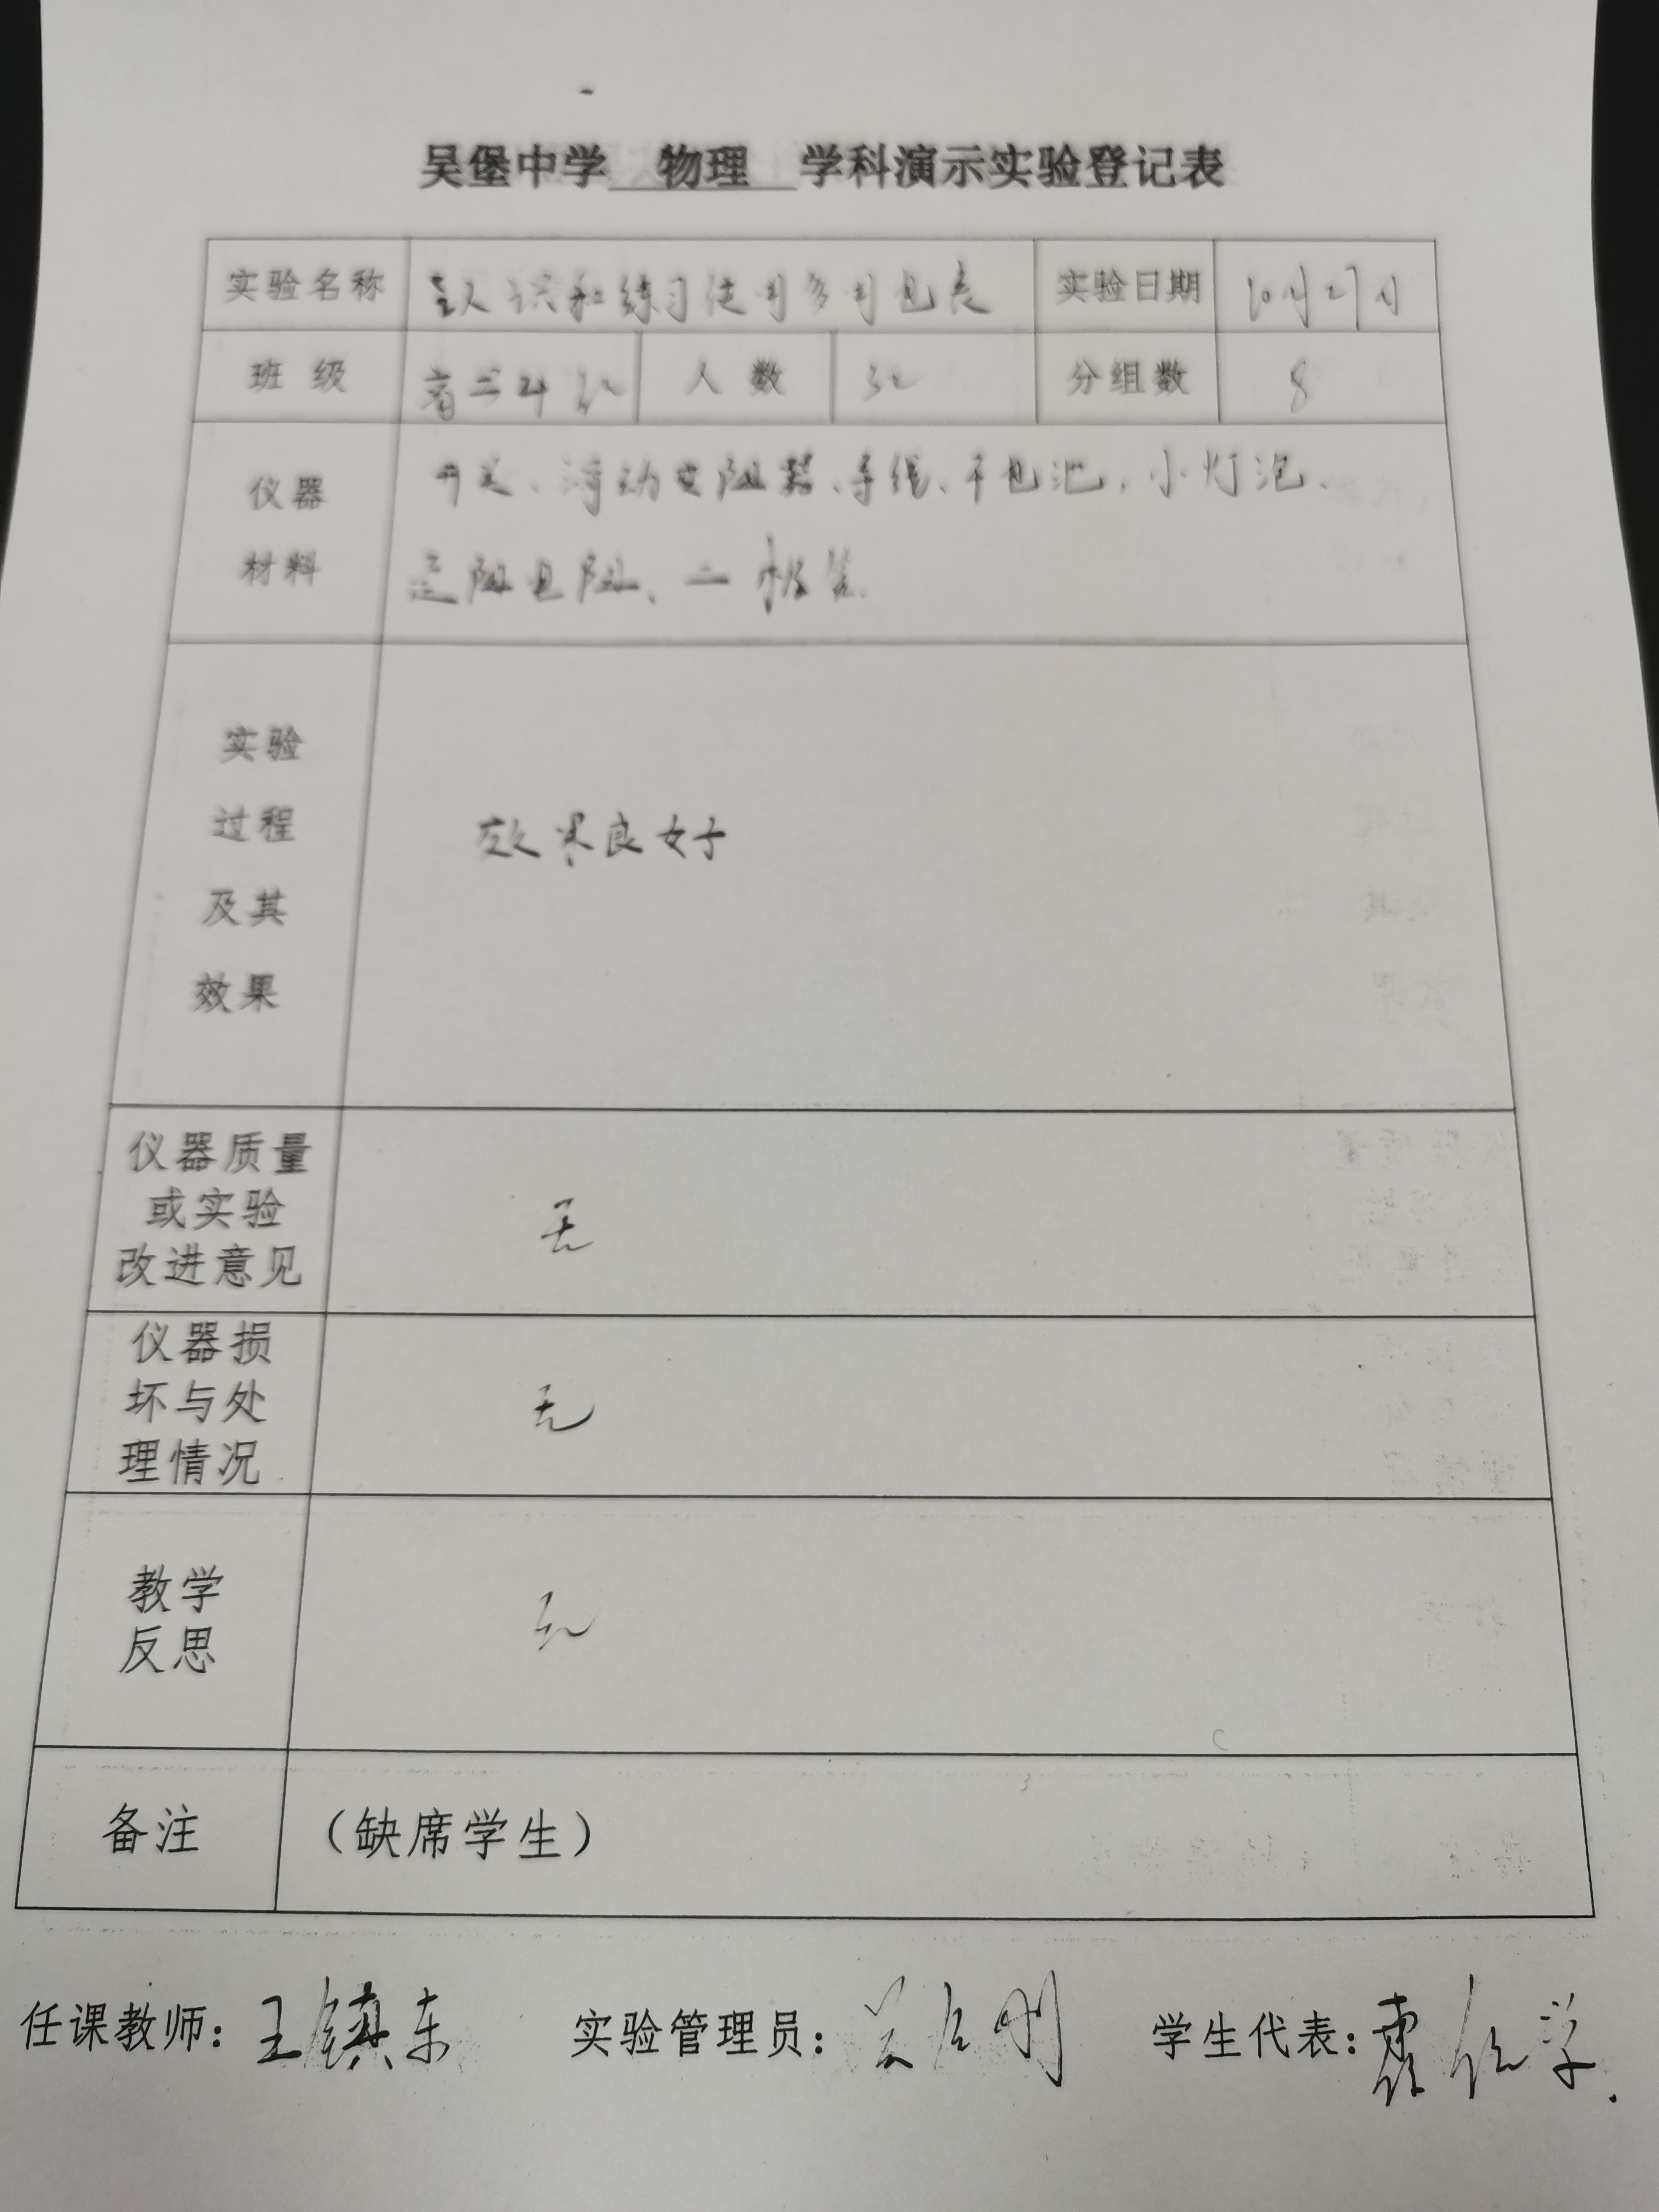 吴堡中学 物理 学科演示实验登记表
实验名称 认识和练习使用多用电表 实验日期 10月27日
班 级 高二4班 人 数 32 分组数 8
仪器
材料
开关、滑动变阻器、导线、干电池，小灯泡、
定阻电阻、二极管.
实验
过程
及其
效果
效果良好
仪器质量
或实验
改进意见
无
仪器损
坏与处
理情况
无
教学
反思
无
备注 （缺席学生）
任课教师：王镇东 实验管理员： 学生代表：